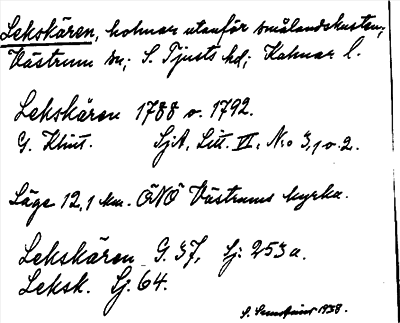 Lekskären, holmar utanför smålandskusten,
Västrum sn; S. Tjusts hd; Kalmar l.
Lekskären 1788 o. 1792.
G. Klint. SjA, Litt. VI, N:o 3,1 o 2.
Läge 12,1 km. ÖNÖ Västrums kyrka.
Lekskären G. 37, Sj: 253 a.
Leksk. Sj. 64.
S. 1938.